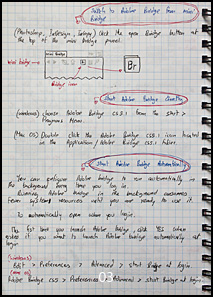 Switch to Adobe Bridge from mini
Bridge
(Photoshop, InDesign, InCopy) Click the open Bridge button at
the top of the mini Bridge panel.
mini Bridge
Br
Bridge icon
Start Adobe Bridge directly
(windows) choose Adobe Bridge CS5.1 from the start >
Programs menu
(Mac OS) Double click the Adobe Bridge CS5.1 icon located
in the Application/Adobe Bridge CS5.1 folder.
Start Adobe Bridge Automatically
You can configure Adobe bridge to run automatically
the background every time you log in.
Running Adobe bridge in the background consumes
fewer systems resources until you are ready to use it.
To automatically open when you login.
The first time you launch Adobe bridge, click YES when
asked if you want to launch Adobe bridge automatically at
login
(windows)
Edit > Preferences > Advanced > start Bridge at login.
(mac OS)
Adobe Bridge CS5 > Preferences > Advanced > start Bridge at login.
03